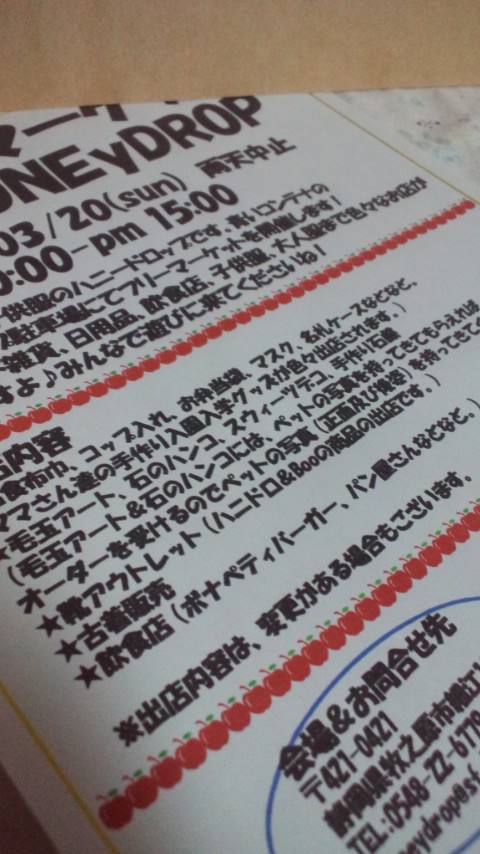 マーケ
ONEyDROP
03/20(sun) 雨天中止
0:00-pm 15:00
供服のハニードロップです。青いコンテナの
駐車場にてフリーマーケットを開催します!
雑貨、日用品、飲食店、子供服、大人服まで色々なお店が
すよ♪みんなで遊びに来てくださいね!
内容
食布巾、コップ入れ、お弁当袋、マスク、名札ケースなどなど。
ママさん達の手作り入園入学グッズが色々出店されます。)
★毛玉アート、石のハンコ、スウィーツデコ、手作り石鹸
(毛玉アート&石のハンコには、ペットの写真を持ってきてもらえれば
オーダーを受けるのでペットの写真(正面及び後姿)を持ってきて
★靴アウトレット(ハニドロ&Booの商品の出店です。)
★古着販売
★飲食店(ボナペティバーガー、パン屋さんなどなど。)
※出店内容は、変更がある場合もございます。
会場&お問合せ先
〒421-0421
静岡県牧之原市細江1
TEL:0548-22-6779
neydrop@sf.